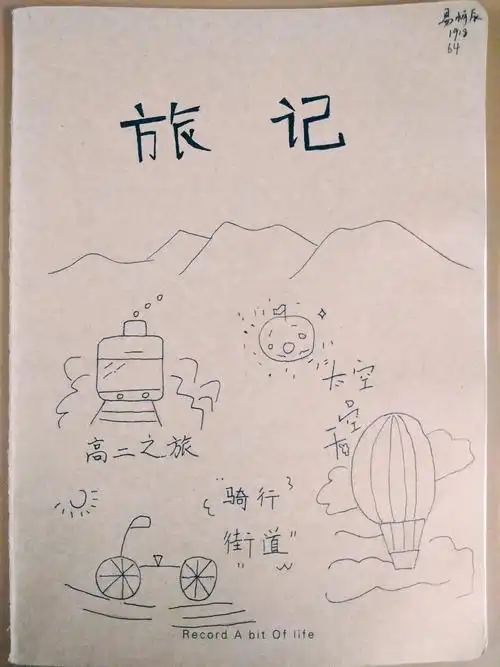 1913
64
旅 记
太空
高二之旅
"骑行
街道"
Record A bit Of life